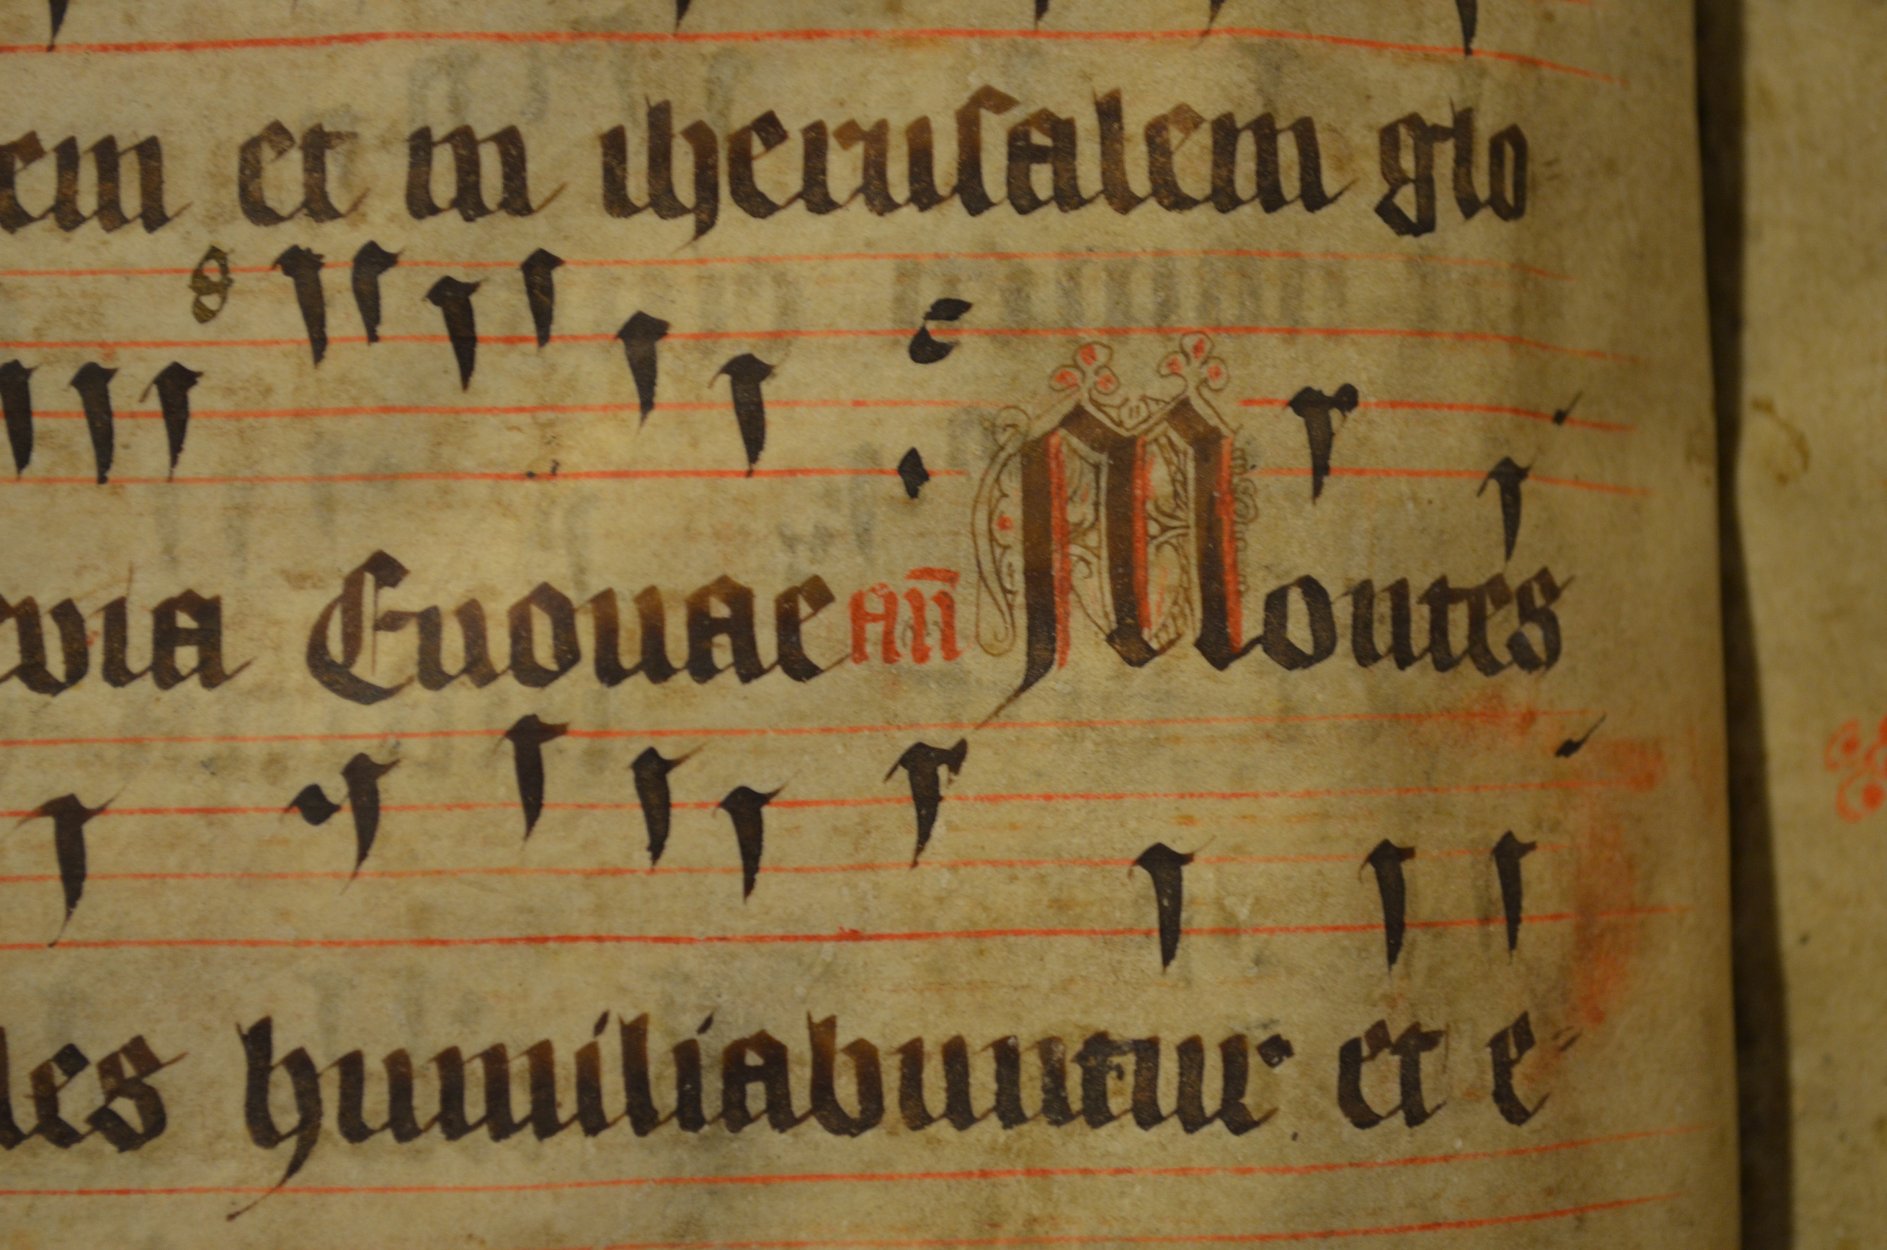 em et in iherusalem glo
evia Euouae añ Montes
les humiliabuntur et e